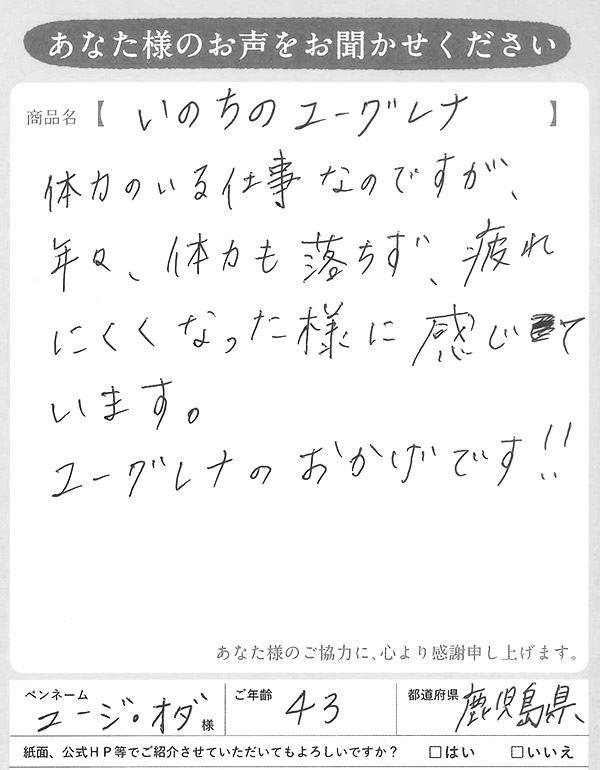 あなた様のお声をお聞かせください
商品名【 いのちのユーグレナ 】
体力のいる仕事なのですが、
年々、体力も落ちず、疲れ
にくくなった様に感じて
います。
ユーグレナのおかげです!!
あなた様のご協力に、心より感謝申し上げます。
ペンネーム ユージ・オダ 様 ご年齢 43 都道府県 鹿児島県
紙面、公式HP等でご紹介させていただいてもよろしいですか? □はい □いいえ